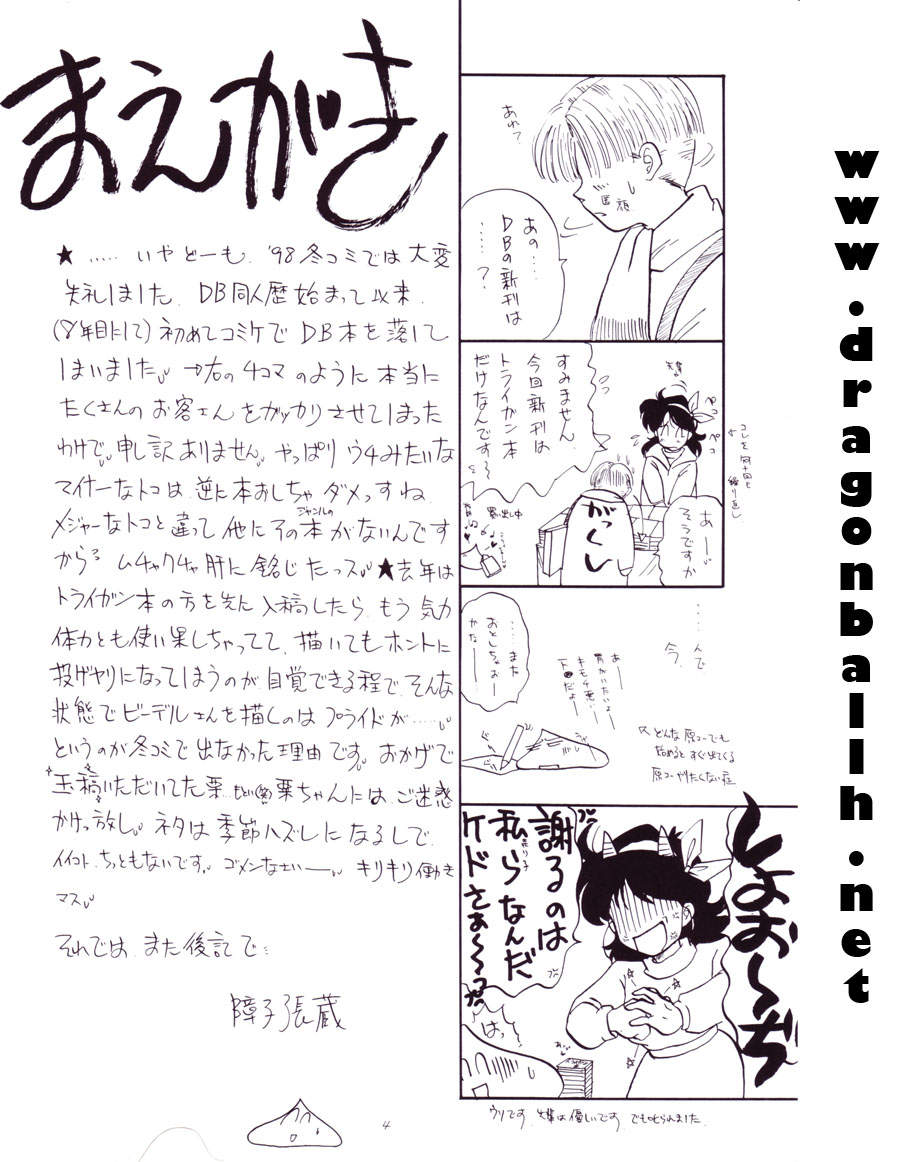 まえがき
★‥‥‥いやどーも、'98冬コミでは大変
失礼しました。DB同人歴始まって以来、
(8年目にして)初めてコミケでDB本を落して
しまいました。→右の4コマのように本当に
たくさんのお客さんをガッカリさせてしまった
わけで。申し訳ありません。やっぱりウチみたいな
マイナーなトコは逆に本おしちゃダメっすね。
メジャーなトコと違って他にその本がないんです
ジャンルの
から。ムチャクチャ肝に銘じたっス。★去年は
トライガン本の方を先に入稿したら、もう気力
体力とも使い果しちゃってて、描いてもホントに
投げヤリになってしまうのが自覚できる程で。そんな
状態でビーデルさんを描くのはプライドが‥‥‥
というのが冬コミで出なかった理由です。おかげで
玉稿いただいてた栗 栗ちゃんにはご迷惑
かけっ放し。ネタは季節ハズレになるしで
イイコト、ちっともないです。ゴメンなさいー。キリキリ働き
マス。
それでは、また後記で
障子張蔵
4
あれ?
あの‥‥
DBの新刊は
‥‥‥?
すみません
今回新刊は
トライガン本
だけなんです〜
ペコ
ペコ
コレを何十回も
繰り返し
あー
そうですか
がっくし
‥‥‥
んで
今、
‥‥‥また
おとしちゃぉー
かなー
あーー
胃がいたいよーー
キモチ悪ーー
下だよーー
どんな原コーでも
始めるとすぐ出てくる
原コーやりたくない症
しょお〜ぢ
謝るのは
私らなんだ
売り子
ケドさぁ〜〜っ
はっ
ウソです 先輩は優しいです でも叱られました
www.dragonballh.net